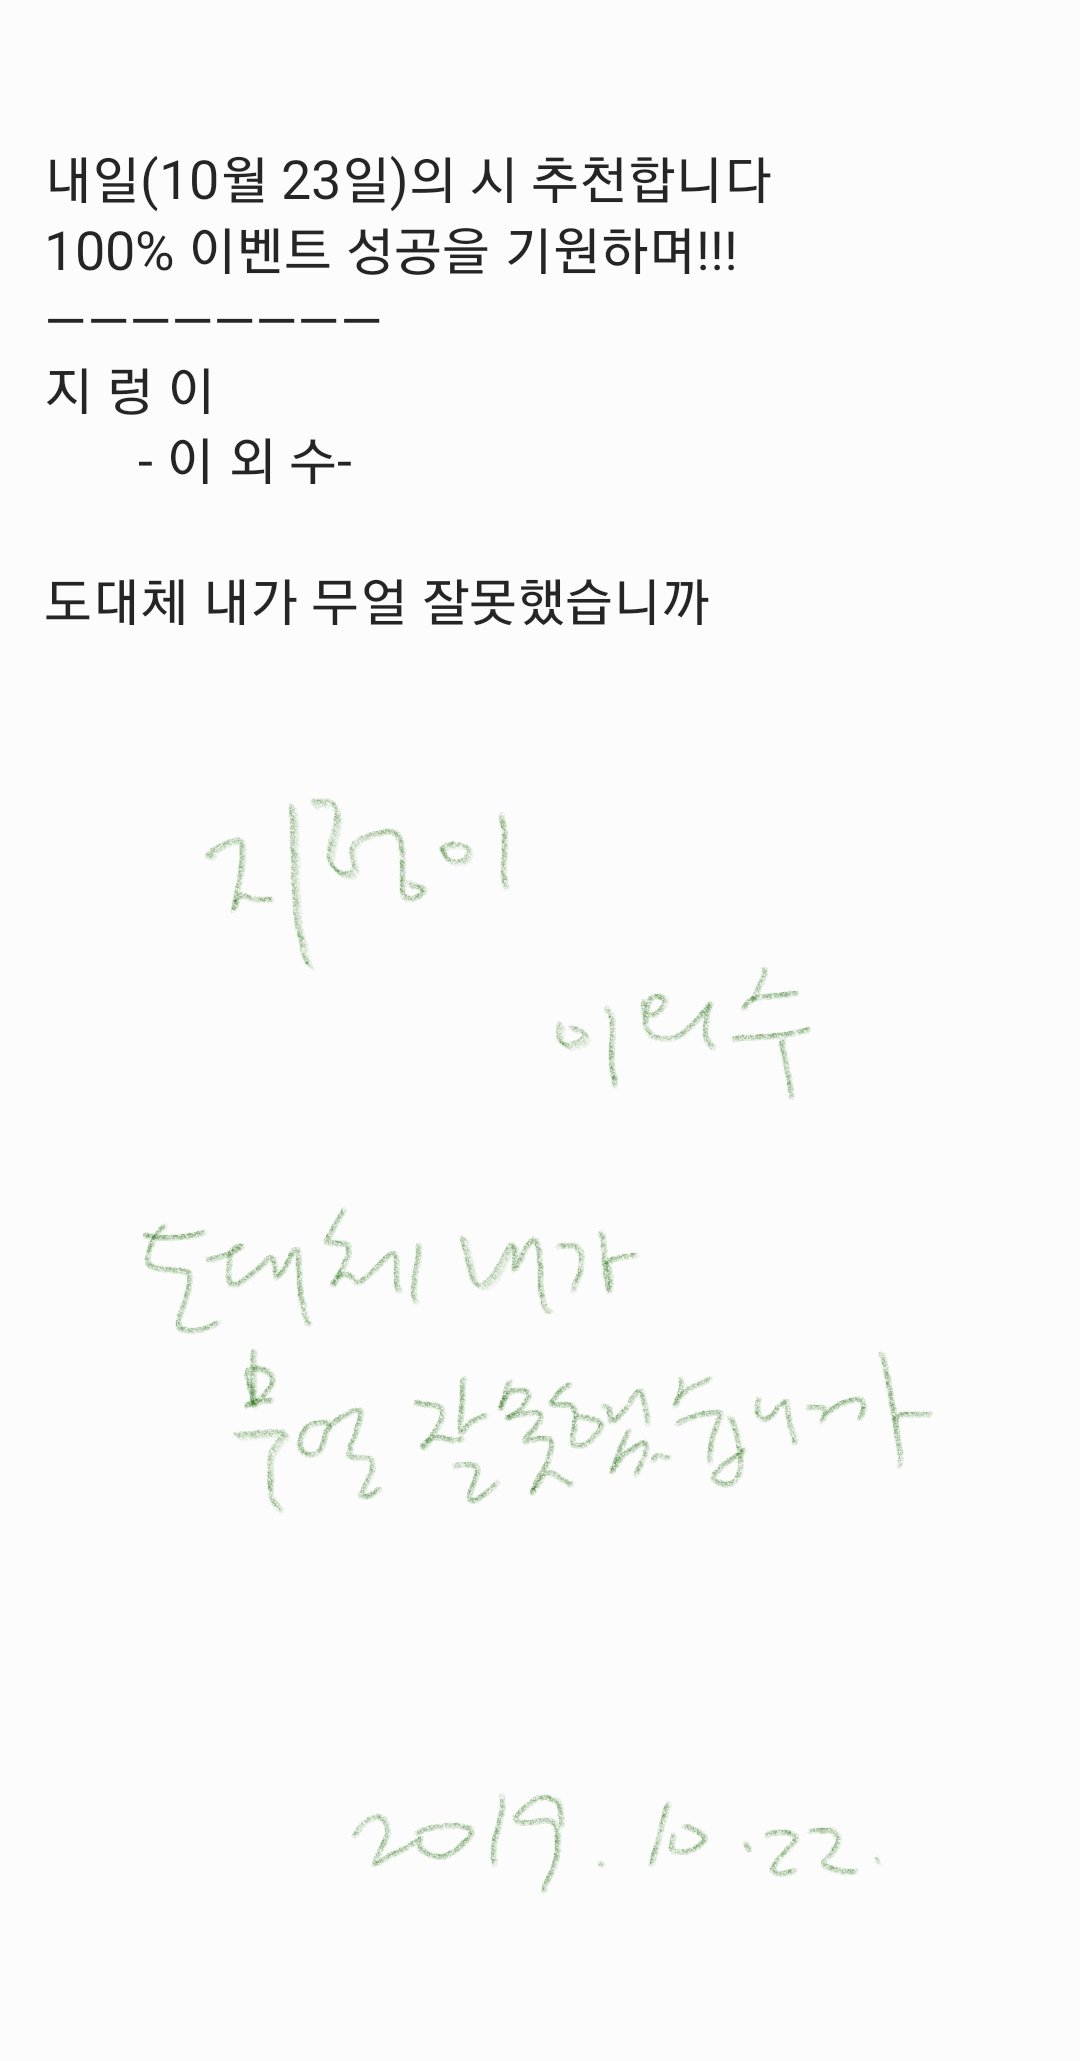 내일(10월 23일)의 시 추천합니다
100% 이벤트 성공을 기원하며!!!
ㅡㅡㅡㅡㅡㅡㅡㅡ
지 렁 이
- 이 외 수-
도대체 내가 무얼 잘못했습니까
지렁이
이외수
도대체 내가
무얼 잘못했습니까
2019. 10. 22.